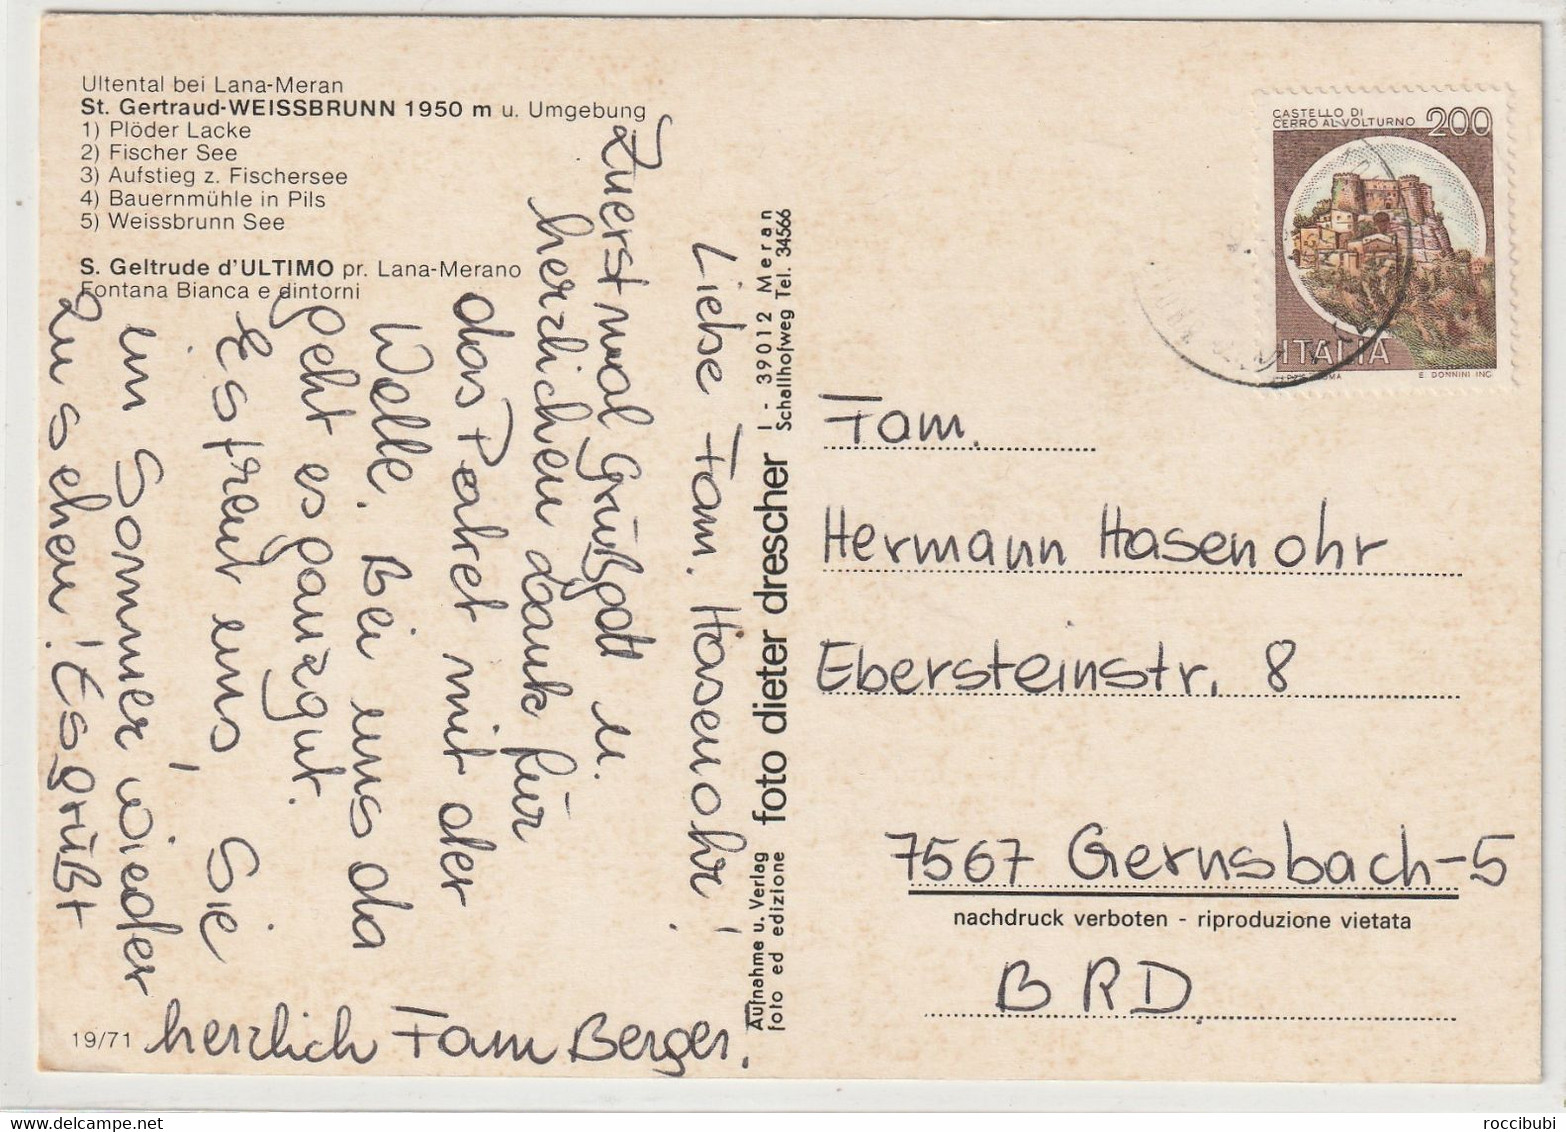 Ultental bei Lana-Meran
St. Gertraud-WEISSBRUNN 1950 m u. Umgebung
1) Plöder Lacke
2) Fischer See
3) Aufstieg z. Fischersee
4) Bauernmühle in Pils
5) Weissbrunn See
S. Geltrude d'ULTIMO pr. Lana-Merano
Fontana Bianca e dintorni
Liebe Fam. Hasenohr!
Zuerst mal Grüßgott u.
herzlichen Dank für
das Paket mit der
Wolle. Bei uns da
geht es ganz gut.
Es freut uns, Sie
im Sommer, wieder
zu sehen! Es grüßt
herzlich Fam Berger.
19/71
Aufnahme u. Verlag
foto ed edizione
foto dieter drescher
I - 39012 Meran
Schallhofweg Tel. 34566
CASTELLO DI
CERRO AL VOLTURNO 200
ITALIA
E. DONNINI INC.
Fam.
Hermann Hasenohr
Ebersteinstr. 8
7567 Gernsbach-5
nachdruck verboten - riproduzione vietata
BRD
roccibubi